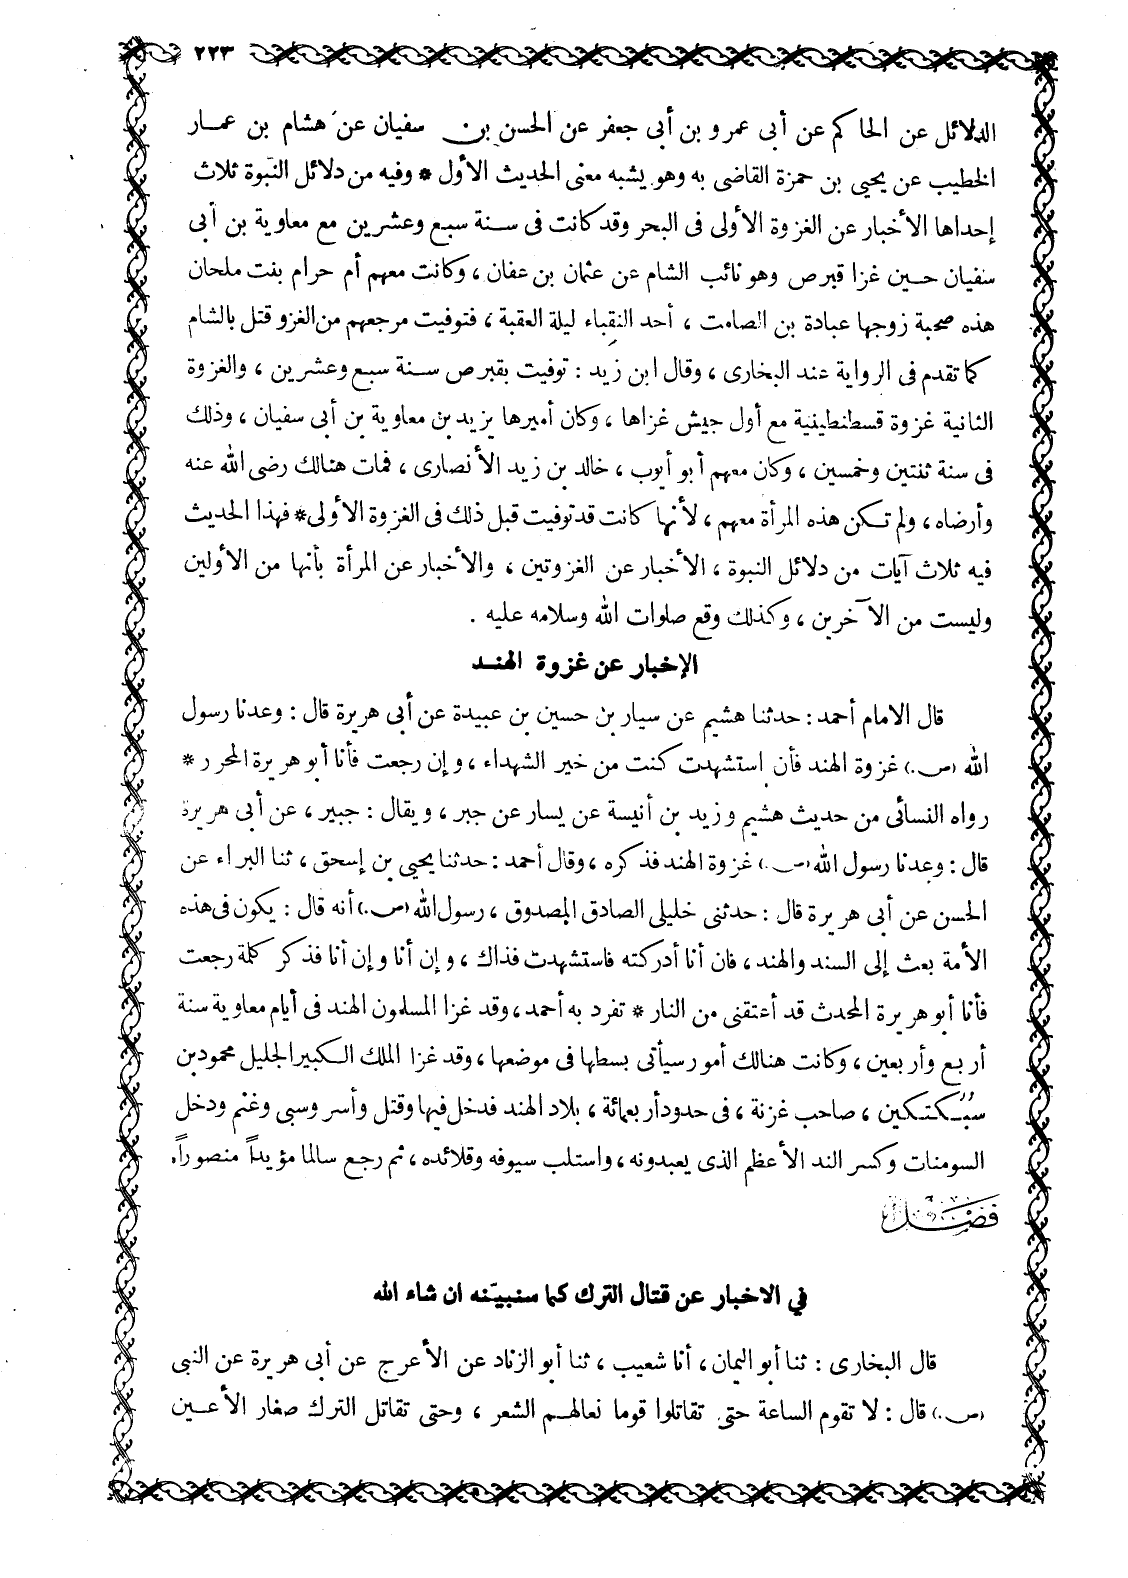 ٢٢٣
الدلائل عن الحاكم عن أبى عمرو بن أبى جعفر عن الحسن بن سفيان عن هشام بن عمار
الخطيب عن يحيى بن حمزة القاضى به وهو يشبه معنى الحديث الأول * وفيه من دلائل النبوة ثلاث
إحداها الأخبار عن الغزوة الأولى فى البحر وقد كانت فى سنة سبع وعشرين مع معاوية بن أبى
سفيان حين غزا قبرص وهو نائب الشام عن عثمان بن عفان ، وكانت معهم أم حرام بنت ملحان
هذه صحبة زوجها عبادة بن الصامت ، أحد النقباء ليلة العقبة ، فتوفيت مرجعهم من الغزو قتل بالشام
كما تقدم فى الرواية عند البخارى ، وقال ابن زيد : توفيت بقبرص سنة سبع وعشرين ، والغزوة
الثانية غزوة قسطنطينية مع أول جيش غزاها ، وكان أميرها يزيد بن معاوية بن أبى سفيان ، وذلك
فى سنة ثنتين وخمسين ، وكان معهم أبو أيوب ، خالد بن زيد الأنصارى ، فمات هنالك رضى الله عنه
وأرضاه ، ولم تكن هذه المرأة معهم ، لأنها كانت قد توفيت قبل ذلك فى الغزوة الأولى * فهذا الحديث
فيه ثلاث آيات من دلائل النبوة ، الأخبار عن الغزوتين ، والأخبار عن المرأة بأنها من الأولين
وليست من الآخرين ، وكذلك وقع صلوات الله وسلامه عليه .
الإخبار عن غزوة الهند
قال الامام أحمد : حدثنا هشيم عن سيار بن حسين بن عبيدة عن أبى هريرة قال : وعدنا رسول
الله (ص.) غزوة الهند فأن استشهدت كنت من خير الشهداء ، وإن رجعت فأنا أبو هريرة المحرر *
رواه النسائى من حديث هشيم وزيد بن أنيسة عن يسار عن جبر ، ويقال : جبير ، عن أبى هريرة
قال : وعدنا رسول الله (ص.) غزوة الهند فذكره ، وقال أحمد : حدثنا يحيى بن إسحق ، ثنا البراء عن
الحسن عن أبى هريرة قال : حدثنى خليلى الصادق المصدوق ، رسول الله (ص.) أنه قال : يكون فى هذه
الأمة بعث إلى السند والهند ، فان أنا أدركته فاستشهدت فذاك ، وإن أنا وإن أنا فذكر كلمة رجعت
فأنا أبو هريرة المحدث قد أعتقنى من النار * تفرد به أحمد ، وقد غزا المسلمون الهند فى أيام معاوية سنة
أربع وأربعين ، وكانت هنالك أمور سيأتى بسطها فى موضعها ، وقد غزا الملك الكبير الجليل محمود بن
سُبُكتكين ، صاحب غزنة ، فى حدود أربعمائة ، بلاد الهند فدخل فيها وقتل وأسر وسبى وغنم ودخل
السومنات وكسر الند الأعظم الذى يعبدونه ، واستلب سيوفه وقلائده ، ثم رجع سالما مؤيداً منصوراً.
فصل
في الاخبار عن قتال الترك كما سنبيّنه ان شاء الله
قال البخارى : ثنا أبو اليمان ، أنا شعيب ، ثنا أبو الزناد عن الأعرج عن أبى هريرة عن النبى
(ص.) قال : لا تقوم الساعة حتى تقاتلوا قوما نعالهم الشعر ، وحتى تقاتل الترك صغار الأعين